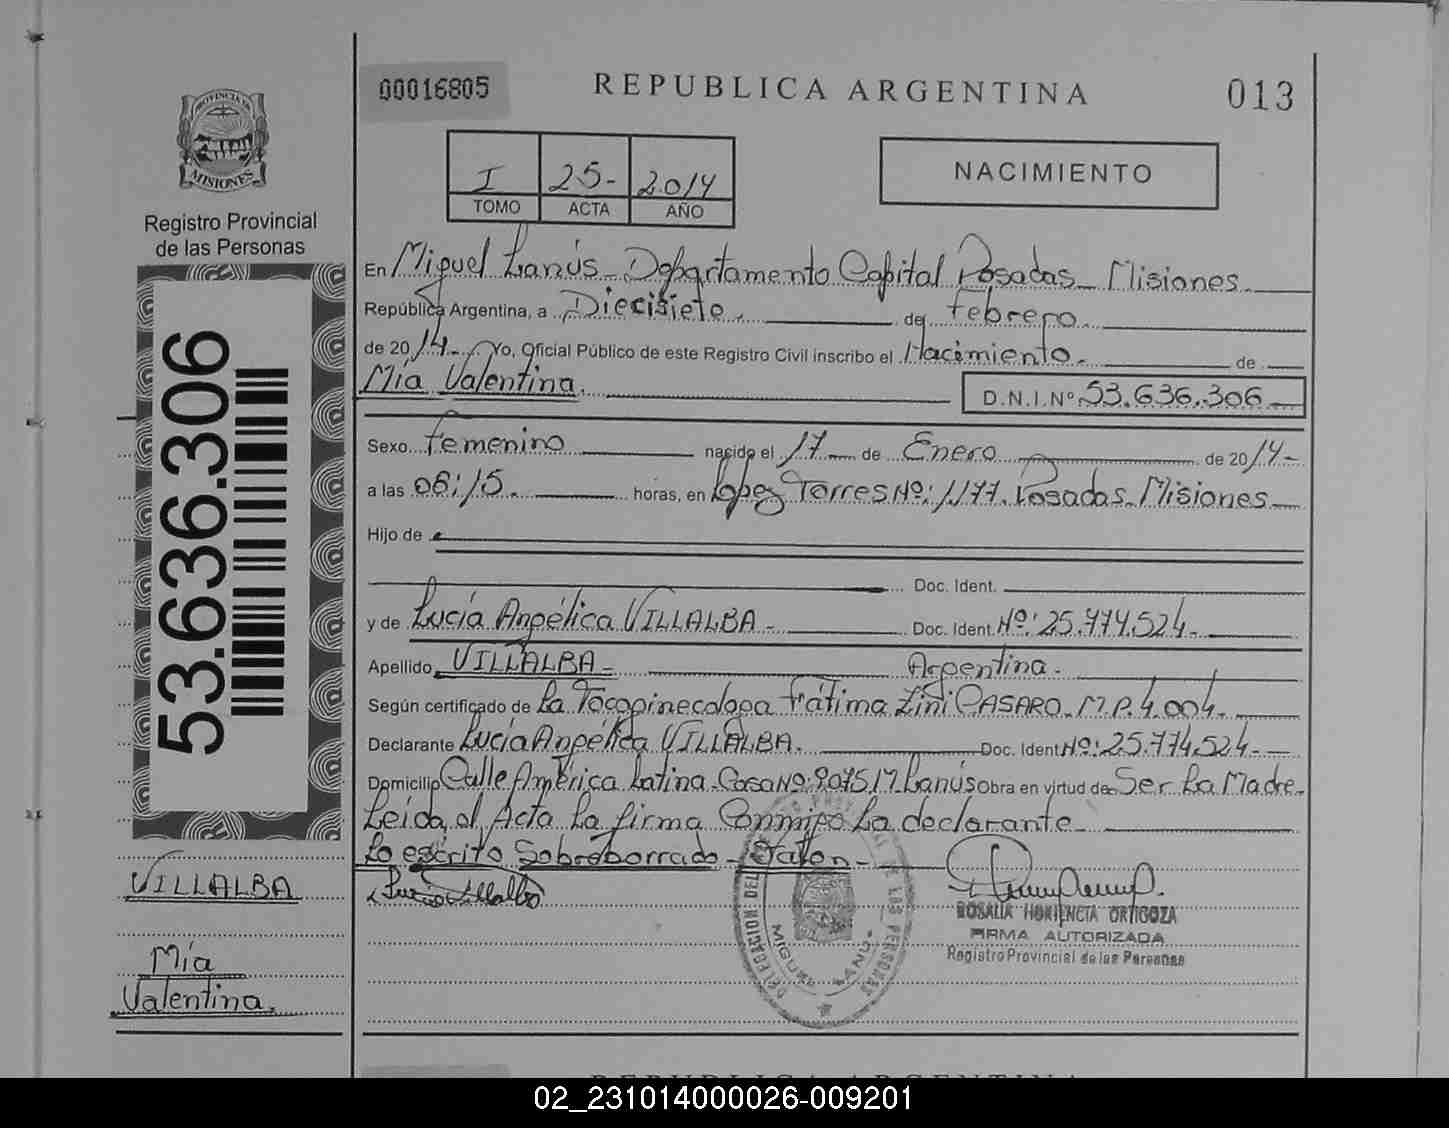 00016805
REPUBLICA ARGENTINA
013
PROVINCIA DE
MISIONES
Registro Provincial
de las Personas
I 25- 2014
TOMO ACTA AÑO
NACIMIENTO
En Miguel Lanús - Departamento Capital Posadas - Misiones -
República Argentina, a Diecisiete. de Febrero.
de 20 14.- Yo, Oficial Público de este Registro Civil inscribo el Nacimiento. de
Mía Valentina. D.N.I.Nº 53.636.306
53.636.306
Sexo Femenino nacido el 17 de Enero de 20 14-
a las 06:15. horas, en Lopez Torres Nº: 1177. Posadas - Misiones
Hijo de
Doc. Ident.
y de Lucía Angélica VILLALBA - Doc. Ident. Nº: 25.774.524-
Apellido VILLALBA - Argentina -
Según certificado de La Tocoginecologa Fátima Zini CASARO - M.P. 4.004.
Declarante Lucía Angélica VILLALBA. Doc. Ident Nº: 25.774.524-
Domicilio Calle América Latina - Casa Nº: 9075 17 Lanús obra en virtud de Ser La Madre.
Leída el Acta La firma Conmigo La declarante
Lo escrito Sobreborrado - Valen -
VILLALBA
Mía
Valentina.
Lucia Villalba
DELEGACION DEL REGISTRO PROVINCIAL DE LAS PERSONAS
MIGUEL LANUS
ROSALIA HORTENCIA ORTIGOZA
FIRMA AUTORIZADA
Registro Provincial de las Personas
REPUBLICA ARGENTINA
02_231014000026-009201